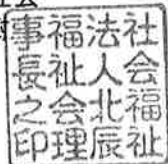 社会福祉
法人北辰
福祉会理
事長之印